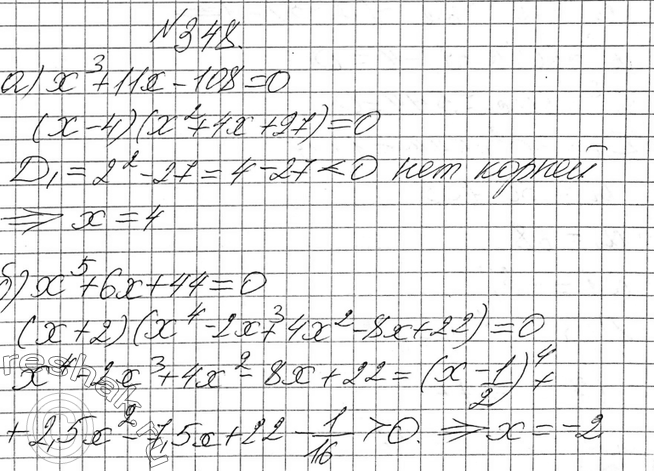 №348.
а) x³+11x-108=0
(x-4)(x²+4x+27)=0
D₁=2²-27=4-27<0 нет корней
⇒ x=4
б) x⁵+6x+44=0
(x+2)(x⁴-2x³+4x²-8x+22)=0
x⁴-2x³+4x²-8x+22=(x-1/2)⁴+
+2,5x²-7,5x+22-1/16>0. ⇒ x=-2
reshak.ru